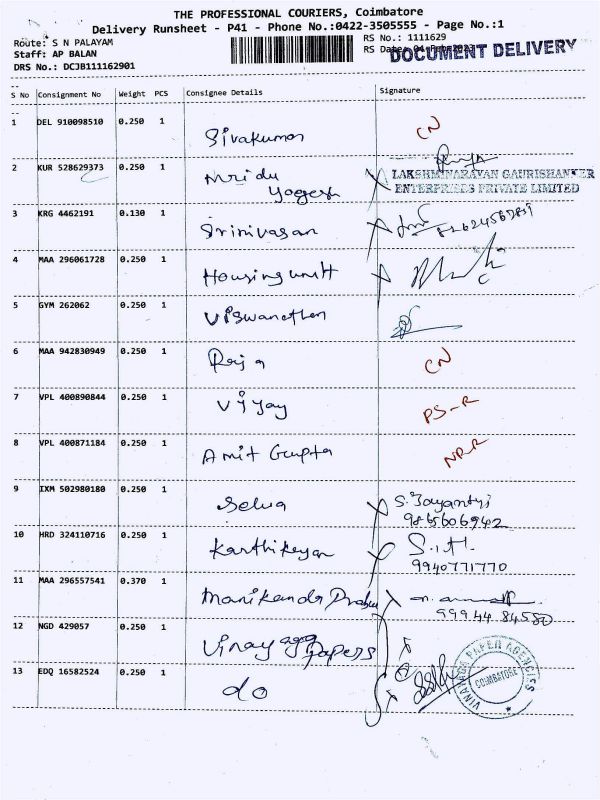 THE PROFESSIONAL COURIERS, Coimbatore
Delivery Runsheet - P41 - Phone No.:0422-3505555 - Page No.:1
Route: S N PALAYAM
RS No.: 1111629
Staff: AP BALAN
RS Date:
DOCUMENT DELIVERY
DRS No.: DCJB111162901
S No Consignment No Weight PCS Consignee Details Signature
1 DEL 910098510 0.250 1 Sivakumar CN
2 KUR 528629373 0.250 1 Mridu
Yogesh
LAKSHMINARAYAN GAURISHANKER
ENTERPRISES PRIVATE LIMITED
3 KRG 4462191 0.130 1 Srinivasan
4 MAA 296061728 0.250 1 Housing unit
5 GYM 262062 0.250 1 Viswanathan
6 MAA 942830949 0.250 1 Raja CN
7 VPL 400890844 0.250 1 Vijay PS-R
8 VPL 400871184 0.250 1 Amit Gupta NRR
9 IXM 502980180 0.250 1 Selva S. Jayanthi
9865606942
10 HRD 324110716 0.250 1 Karthikeyan
9940771770
11 MAA 296557541 0.370 1 Manikanda Prabu
999 44 84580
12 NGD 429057 0.250 1 Vinayaga
Papers
13 EDQ 16582524 0.250 1 do
VINAYAGA PAPER AGENCIES
COIMBATORE